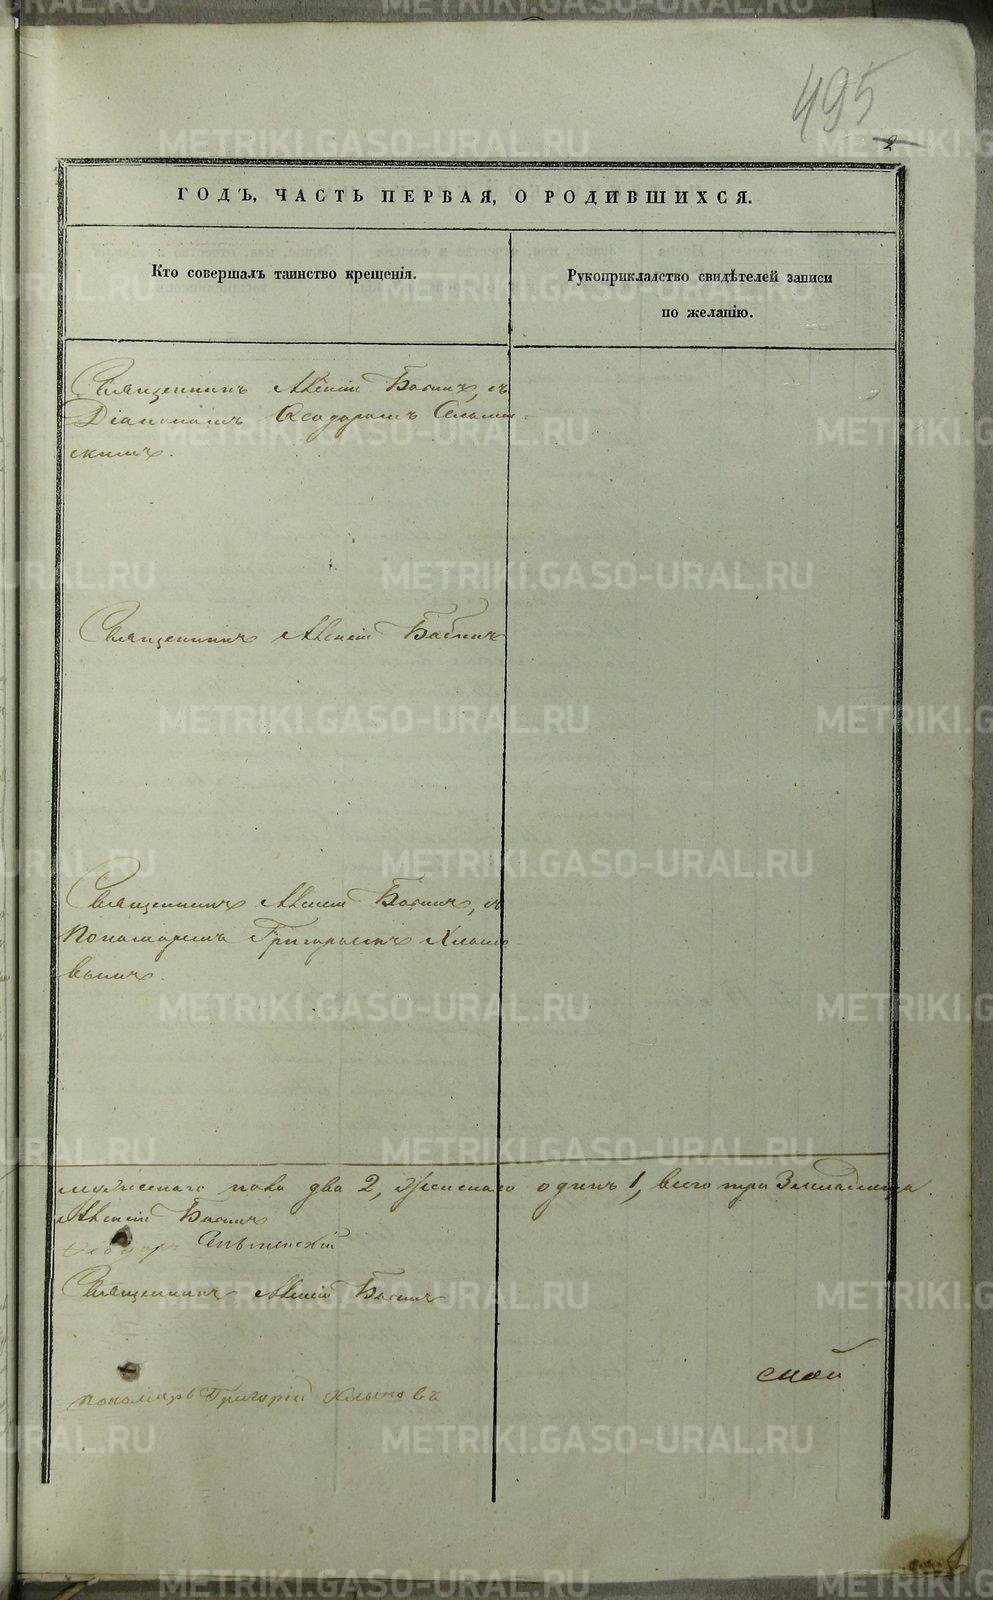 495
2
ГОДЪ, ЧАСТЬ ПЕРВАЯ, О РОДИВШИХСЯ.
Кто совершалъ таинство крещенія.
Рукоприкладство свидѣтелей записи
по желанію.
Священникъ Алексій Бабинъ, съ
Діакономъ Ѳеодоромъ
скимъ.
Священникъ Алексій Бабинъ
Священникъ Алексій Бабинъ, съ
Пономаремъ Григоріемъ Клыко
вымъ.
мужескаго пола два 2, женскаго одинъ 1, всего три 3 младенца.
Алексій Бабинъ
Ѳеодоръ
Священникъ Алексій Бабинъ
ской
пономарь Григорій Клыковъ
METRIKI.GASO-URAL.RU